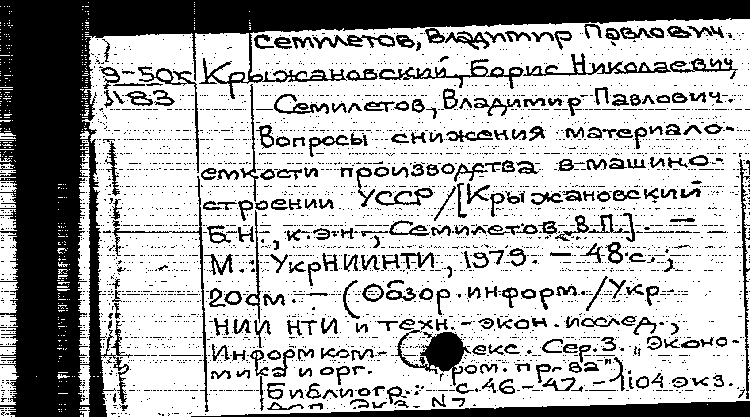 Семилетов, Владимир Павлович.
9-50к Крыжановский, Борис Николаевич,
183 Семилетов, Владимир Павлович.
Вопросы снижения материало-
емкости производства в машино-
строении УССР / [Крыжановский
Б.Н., к.э.н., Семилетов В.П.]. —
М.: УкрНИИНТИ, 1979. — 48 с.;
20 см. — (Обзор. информ. / Укр
НИИ НТИ и техн.-экон. исслед.,
Информком- лекс. Сер. 3. „Эконо-
мика и орг. пром. пр-ва")
Библиогр.: с. 46-47. — 1104 экз.